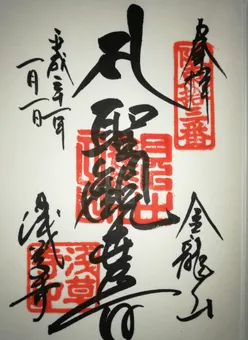 奉拝
三番
金龍山
聖観世音
平成三十一年
一月一日
浅草寺
浅草寺印